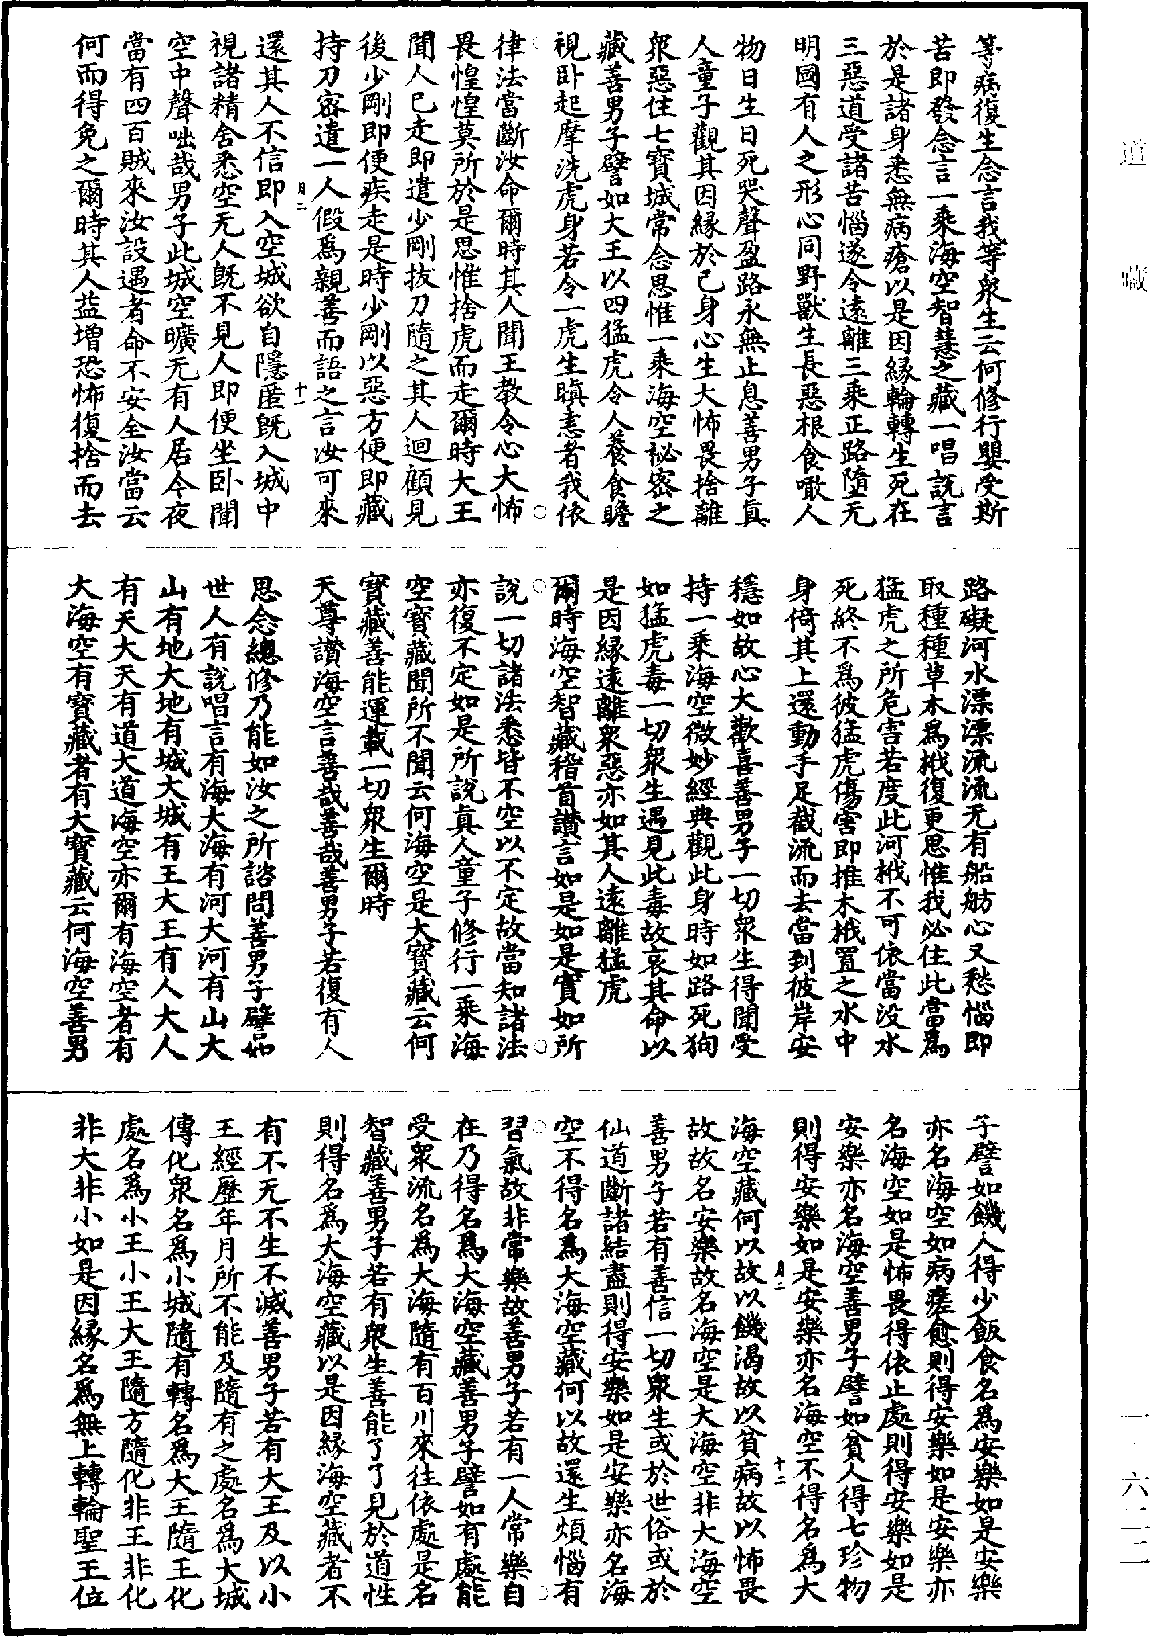 道藏
一·六二二
等病復生念言我等衆生云何修行嬰受斯
苦即發念言一乘海空智慧之藏一唱說言
於是諸身悉無病瘡以是因緣輪轉生死在
三惡道受諸苦惱遂令遠離三乘正路墮无
明國有人之形心同野獸生長惡根食噉人
物日生日死哭聲盈路永無止息善男子真
人童子觀其因緣於已身心生大怖畏捨離
衆惡住七寶城常念思惟一乘海空祕密之
藏善男子譬如大王以四猛虎令人養食瞻
視卧起摩洗虎身若令一虎生瞋恚者我依
律法當斷汝命爾時其人聞王教令心大怖
畏惶惶莫所於是思惟捨虎而走爾時大王
聞人已走即遣少剛拔刀隨之其人迴顧見
後少剛即便疾走是時少剛以惡方便即藏
持刀密遣一人假爲親善而語之言汝可來
月二
十一
還其人不信即入空城欲自隱匿旣入城中
視諸精舍悉空无人旣不見人即便坐卧聞
空中聲咄哉男子此城空曠无有人居今夜
當有四百賊來汝設遇者命不安全汝當云
何而得免之爾時其人益增恐怖復捨而去
路礙河水漂漂流流无有船舫心又愁惱即
取種種草木爲栰復更思惟我必住此當爲
猛虎之所危害若度此河栰不可依當没水
死終不爲彼猛虎傷害即推木栰置之水中
身倚其上還動手足截流而去當到彼岸安
穩如故心大歡喜善男子一切衆生得聞受
持一乘海空微妙經典觀此身時如路死狗
如猛虎毒一切衆生遇見此毒故哀其命以
是因緣遠離衆惡亦如其人遠離猛虎
爾時海空智藏稽首讚言如是如是實如所
說一切諸法悉皆不空以不定故當知諸法
亦復不定如是所說真人童子修行一乘海
空寶藏聞所不聞云何海空是大寶藏云何
寶藏善能運載一切衆生爾時
天尊讚海空言善哉善哉善男子若復有人
思念總修乃能如汝之所諮問善男子譬如
世人有說唱言有海大海有河大河有山大
山有地大地有城大城有王大王有人大人
有天大天有道大道海空亦爾有海空者有
大海空有寶藏者有大寶藏云何海空善男
子譬如饑人得少飯食名爲安樂如是安樂
亦名海空如病瘥愈則得安樂如是安樂亦
名海空如是怖畏得依止處則得安樂如是
安樂亦名海空善男子譬如貧人得七珍物
則得安樂如是安樂亦名海空不得名爲大
月二
十二
海空藏何以故以饑渴故以貧病故以怖畏
故故名安樂故名海空是大海空非大海空
善男子若有善信一切衆生或於世俗或於
仙道斷諸結盡則得安樂如是安樂亦名海
空不得名爲大海空藏何以故還生煩惱有
習氣故非常樂故善男子若有一人常樂自
在乃得名爲大海空藏善男子譬如有處能
受衆流名爲大海隨有百川來往依處是名
智藏善男子若有衆生善能了了見於道性
則得名爲大海空藏以是因緣海空藏者不
有不无不生不滅善男子若有大王及以小
王經歷年月所不能及隨有之處名爲大城
傳化衆名爲小城隨有轉名爲大王隨王化
處名爲小王小王大王隨方隨化非王非化
非大非小如是因緣名爲無上轉輪聖王位